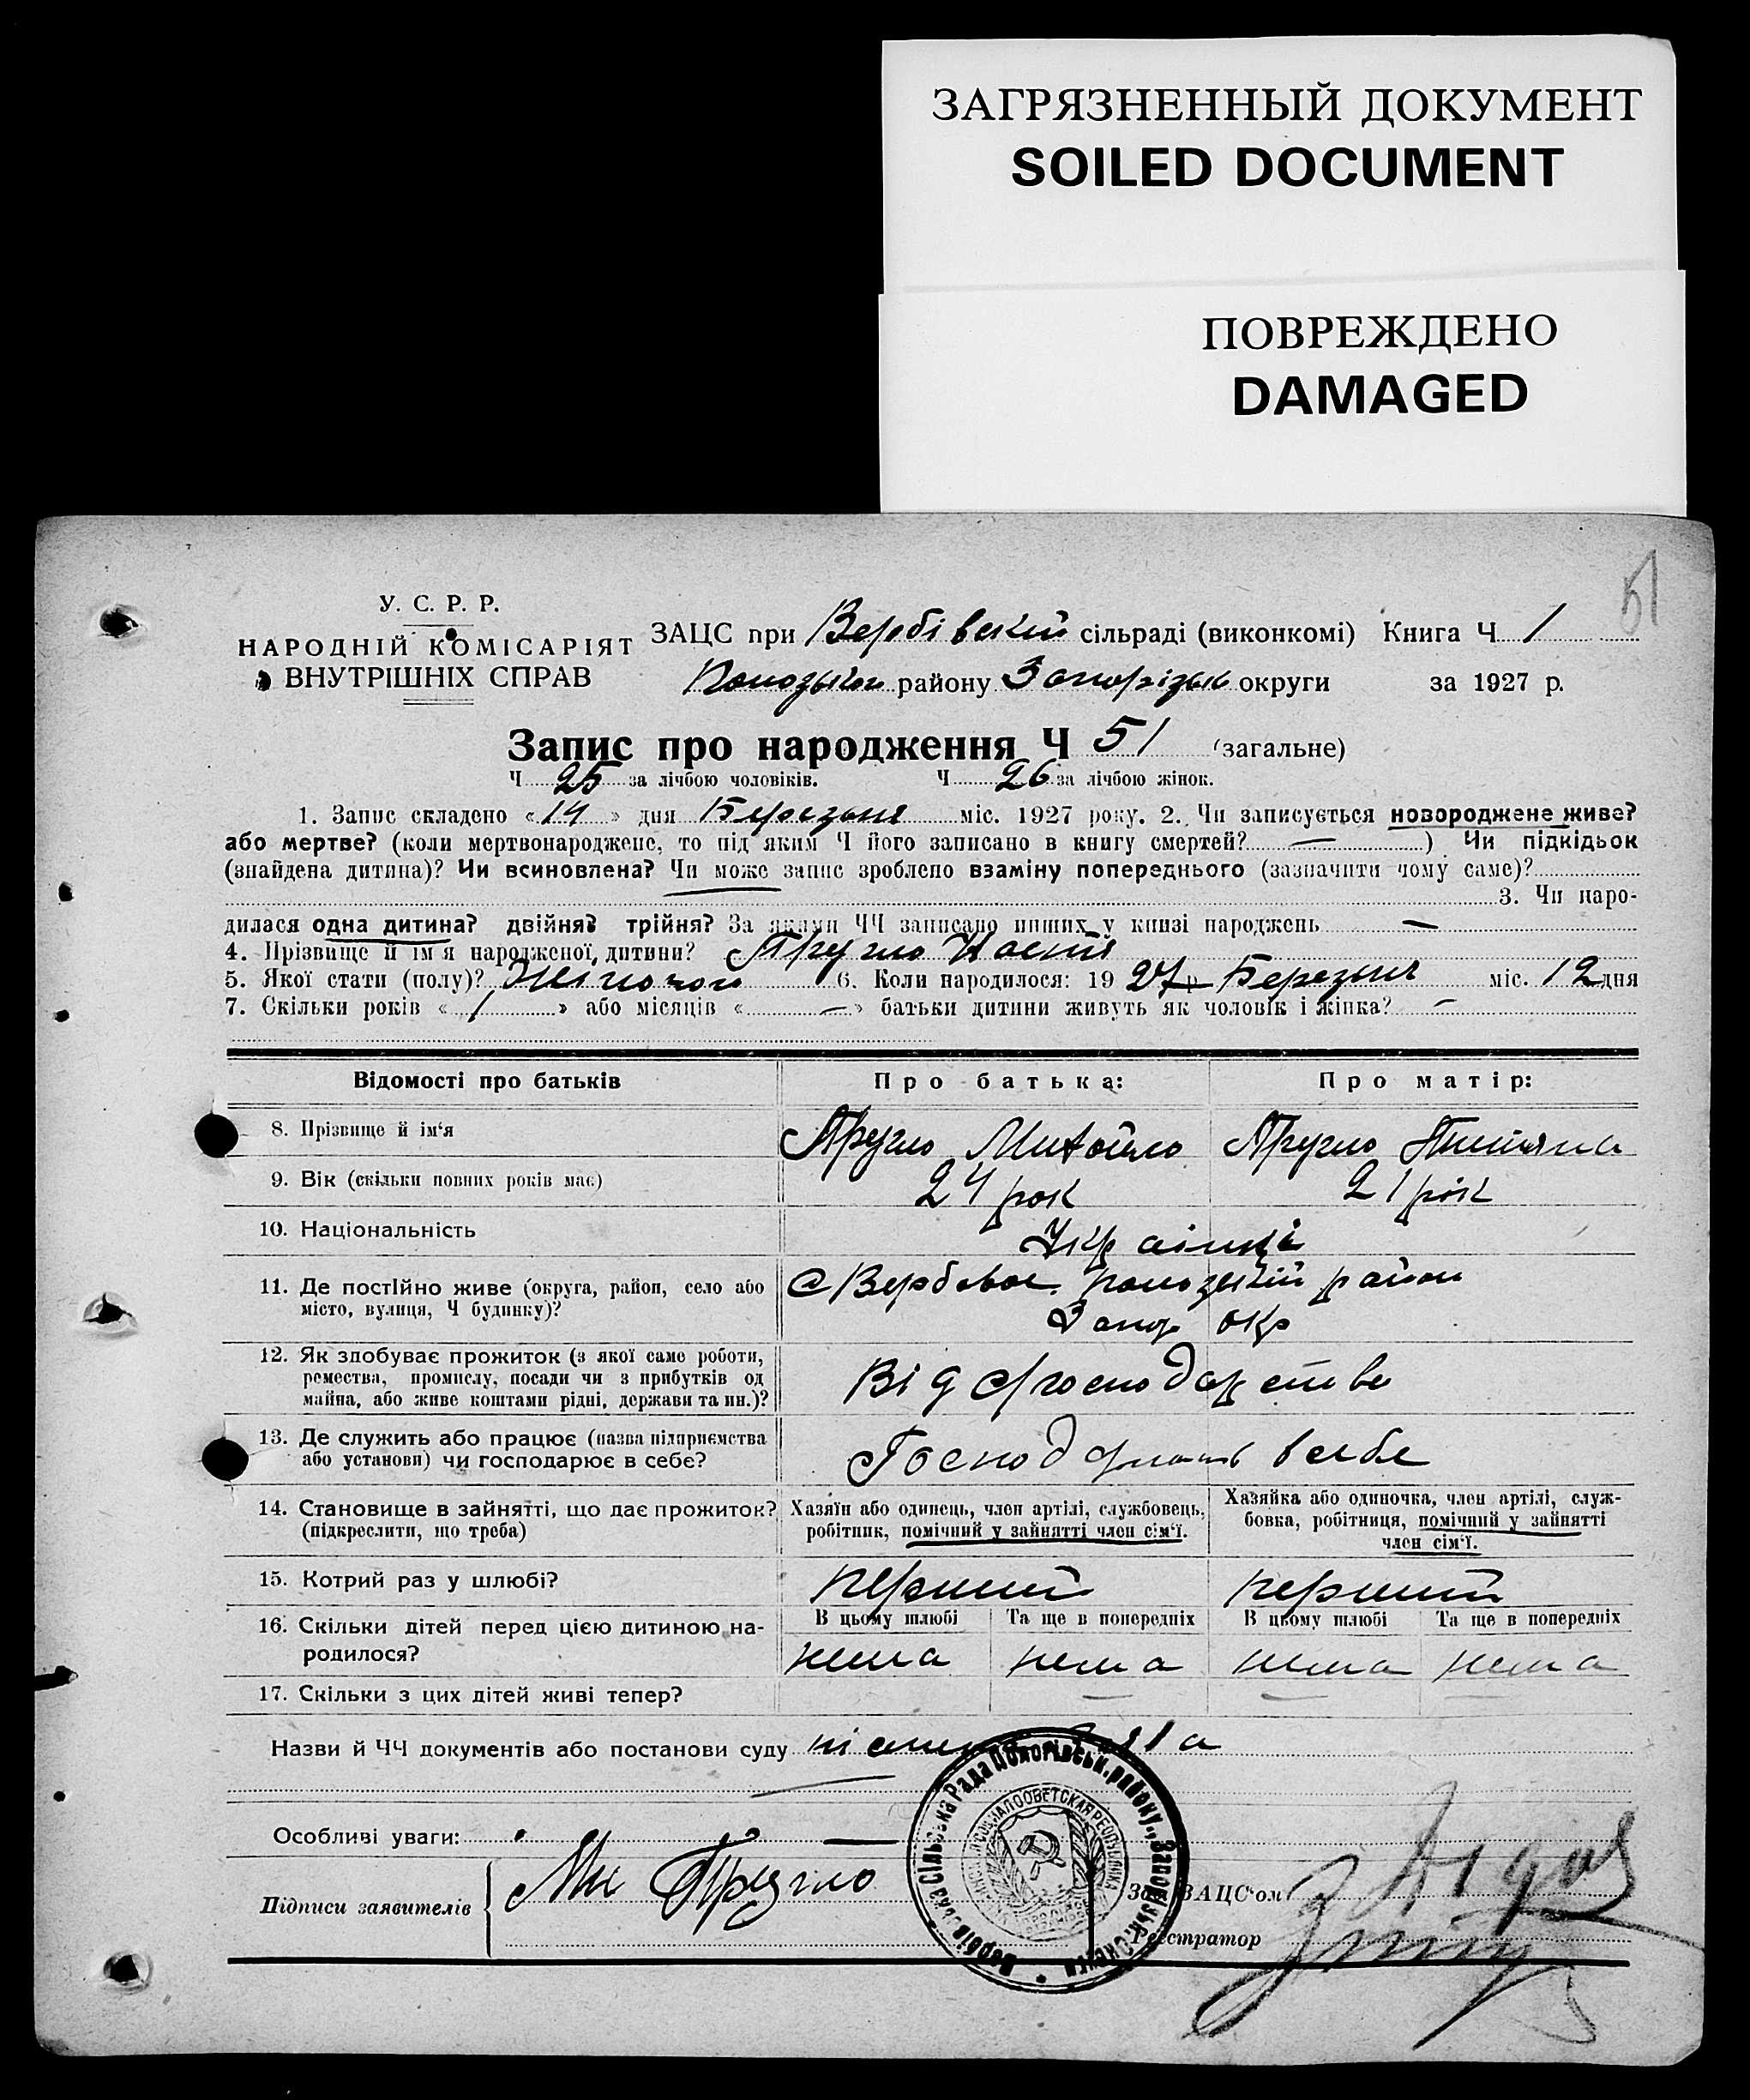 ЗАГРЯЗНЕННЫЙ ДОКУМЕНТ
SOILED DOCUMENT
ПОВРЕЖДЕНО
DAMAGED
51
У. С. Р. Р.
НАРОДНІЙ КОМІСАРІЯТ
ВНУТРІШНІХ СПРАВ
ЗАЦС при Вербівській сільраді (виконкомі) Книга Ч 1
району Запорізьк округи за 1927 р.
Запис про народження Ч 51 (загальне)
Ч 25 за лічбою чоловіків. Ч 26 за лічбою жінок.
1. Запис складено «14» дня Березня міс. 1927 року. 2. Чи записується новороджене живе?
або мертве? (коли мертвонароджене, то під яким Ч його записано в книгу смертей? — ) Чи підкідьок
(знайдена дитина)? Чи всиновлена? Чи може запис зроблено взаміну попереднього (зазначити чому саме)?
3. Чи наро-
дилася одна дитина? двійня? трійня? За якими ЧЧ записано инших у книзі народжень —
4. Прізвище й ім'я народженої дитини? Пругло
5. Якої стати (полу)? Жіночої 6. Коли народилося: 1927 р Березня міс. 12 дня
7. Скільки років «1» або місяців «—» батьки дитини живуть як чоловік і жінка? —
Відомості про батьків Про батька: Про матір:
8. Прізвище й ім'я Пругло Михайло Пругло Титяна
9. Вік (скільки повних років має) 24 рок 21 рік
10. Національність Українці
11. Де постійно живе (округа, район, село або С Вербовое район
місто, вулиця, Ч будинку)? Запор окр
12. Як здобуває прожиток (з якої саме роботи,
ремества, промислу, посади чи з прибутків од Від господарства
майна, або живе коштами рідні, держави та ин.)?
13. Де служить або працює (назва підприємства
або установи) чи господарює в себе? в себе
14. Становище в зайнятті, що дає прожиток? Хазяїн або одинець, член артілі, службовець, Хазяйка або одиночка, член артілі, служ-
(підкреслити, що треба) робітник, помічний у зайнятті член сім'ї. бовка, робітниця, помічний у зайнятті
член сім'ї.
15. Котрий раз у шлюбі? перший перший
16. Скільки дітей перед цією дитиною на- В цьому шлюбі Та ще в попередніх В цьому шлюбі Та ще в попередніх
родилося? нема нема нема нема
17. Скільки з цих дітей живі тепер? — — —
Назви й ЧЧ документів або постанови суду
Особливі уваги: —
Підписи заявителів Мих Пругло
Зав. ЗАЦС'ом
Реєстратор
Вербівська Сільська Рада Пологівськ. району, Запорізьк. Округи